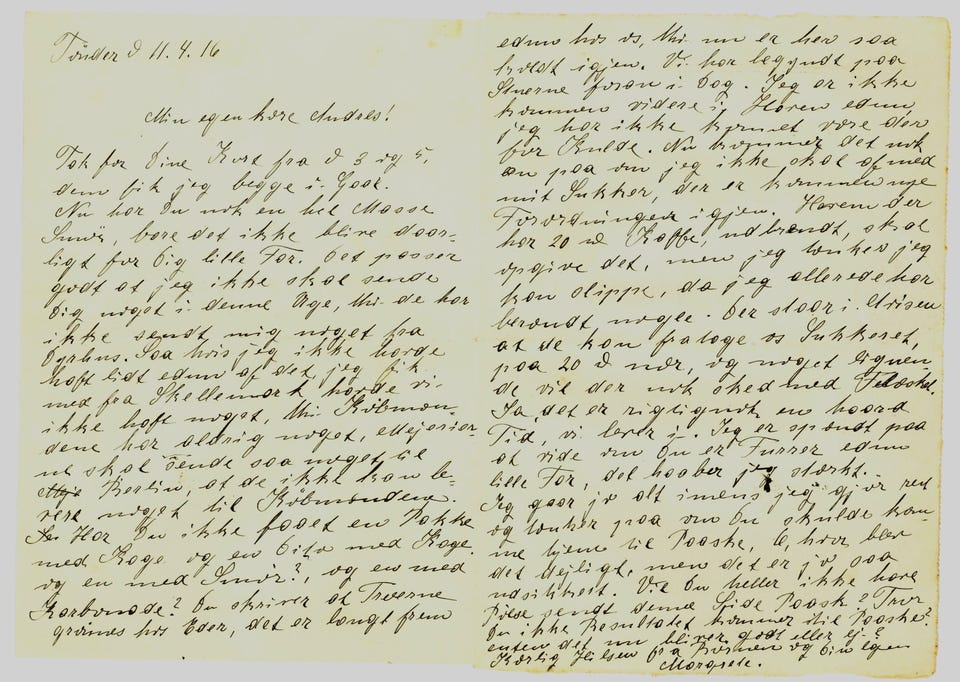 Tønder d 11.4.16
Min egen kære Andres!
Tak for Dine Kort fra d 3 og 5,
dem fik jeg begge i Gaar.
Nu har Du nok en hel Masse
Smør, bare det ikke blive daar-
ligt for Dig lille Far. Det passer
godt at jeg ikke skal sende
Dig noget i denne Uge, thi de har
ikke sendt mig noget fra
Dyrhus. Saa hvis jeg ikke havde
haft lidt ednu af det jeg fik
med fra Skellemark havde vi
ikke haft noget, thi Købmæn-
dene har aldrig noget, Mejerier-
ne skal sende saa noget til
Berlin, at de ikke kan le-
vere noget til Købmændene.
Har Du ikke faaet en Pakke
med Kage og en Dito med Kage
og en med Smør?, og en med
Karbonade? Du skriver at Træerne
grønnes hos Eder, det er langt frem
ednu hos os, thi nu er her saa
koldt igjen. Vi har begyndt paa
Stuerne foran i Dag. Jeg er ikke
kommen videre i Haven ednu
jeg har ikke kunnet være der
for Kulde. Nu kommer det nok
an paa om jeg ikke skal af med
mit Sukker, der er kommen nye
Forordninger igjen. Hvem der
har 20 Kaffe, udbrændt, skal
opgive det, men jeg tænker jeg
kan slippe, da jeg allerede har
brændt, nogle. Der staar i Avisen
at de kan fratage os Sukkeret,
paa 20 nær, og noget lignen-
de vil der nok sked med
Ja det er rigtignok en haard
Tid, vi lever i. Jeg er spændt paa
at vide om Du er Furrer ednu
lille Far, det haaber jeg stærkt.
Jeg gaar jo alt imens jeg gjør rent
og tænker paa om Du skulde kom-
me hjem til Paaske, O, hvor blev
det dejligt, men det er jo saa
udsikkert. Vil Du heller ikke have
Pølse sendt denne Side Paask? Tror
Du ikke Resultatet kommer til Paaske?
enten det nu bliver godt eller ej?
Kærlig Hilsen fra Børnen og Din egen
Margrete.